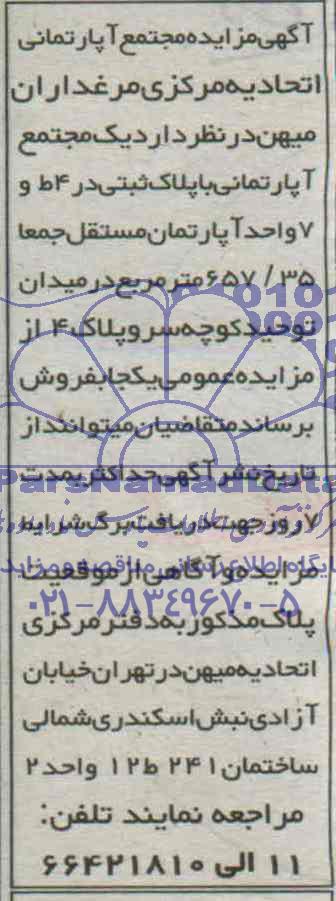 آگهی مزایده مجتمع آپارتمانی
اتحادیه مرکزی مرغداران
میهن در نظر دارد یک مجتمع
آپارتمانی با پلاک ثبتی در ۴ط و
۷ واحد آپارتمان مستقل جمعا
۶۵۷/۳۵ متر مربع در میدان
توحید کوچه سرو پلاک ۴ از
مزایده عمومی یکجا بفروش
برساند متقاضیان میتوانند از
تاریخ نشر آگهی حداکثر بمدت
ParsNamadData
۷ روز جهت دریافت برگ شرایط
مزایده و آگاهی از موقعیت
پایگاه اطلاع رسانی مناقصه و مزایده
۰۲۱-۸۸۳۴۹۶۷۰-۵
پلاک مذکور به دفتر مرکزی
اتحادیه میهن در تهران خیابان
آزادی نبش اسکندری شمالی
ساختمان ۲۴۱ ط۱۲ واحد ۲
مراجعه نمایند تلفن:
۱۱ الی ۶۶۴۲۱۸۱۰